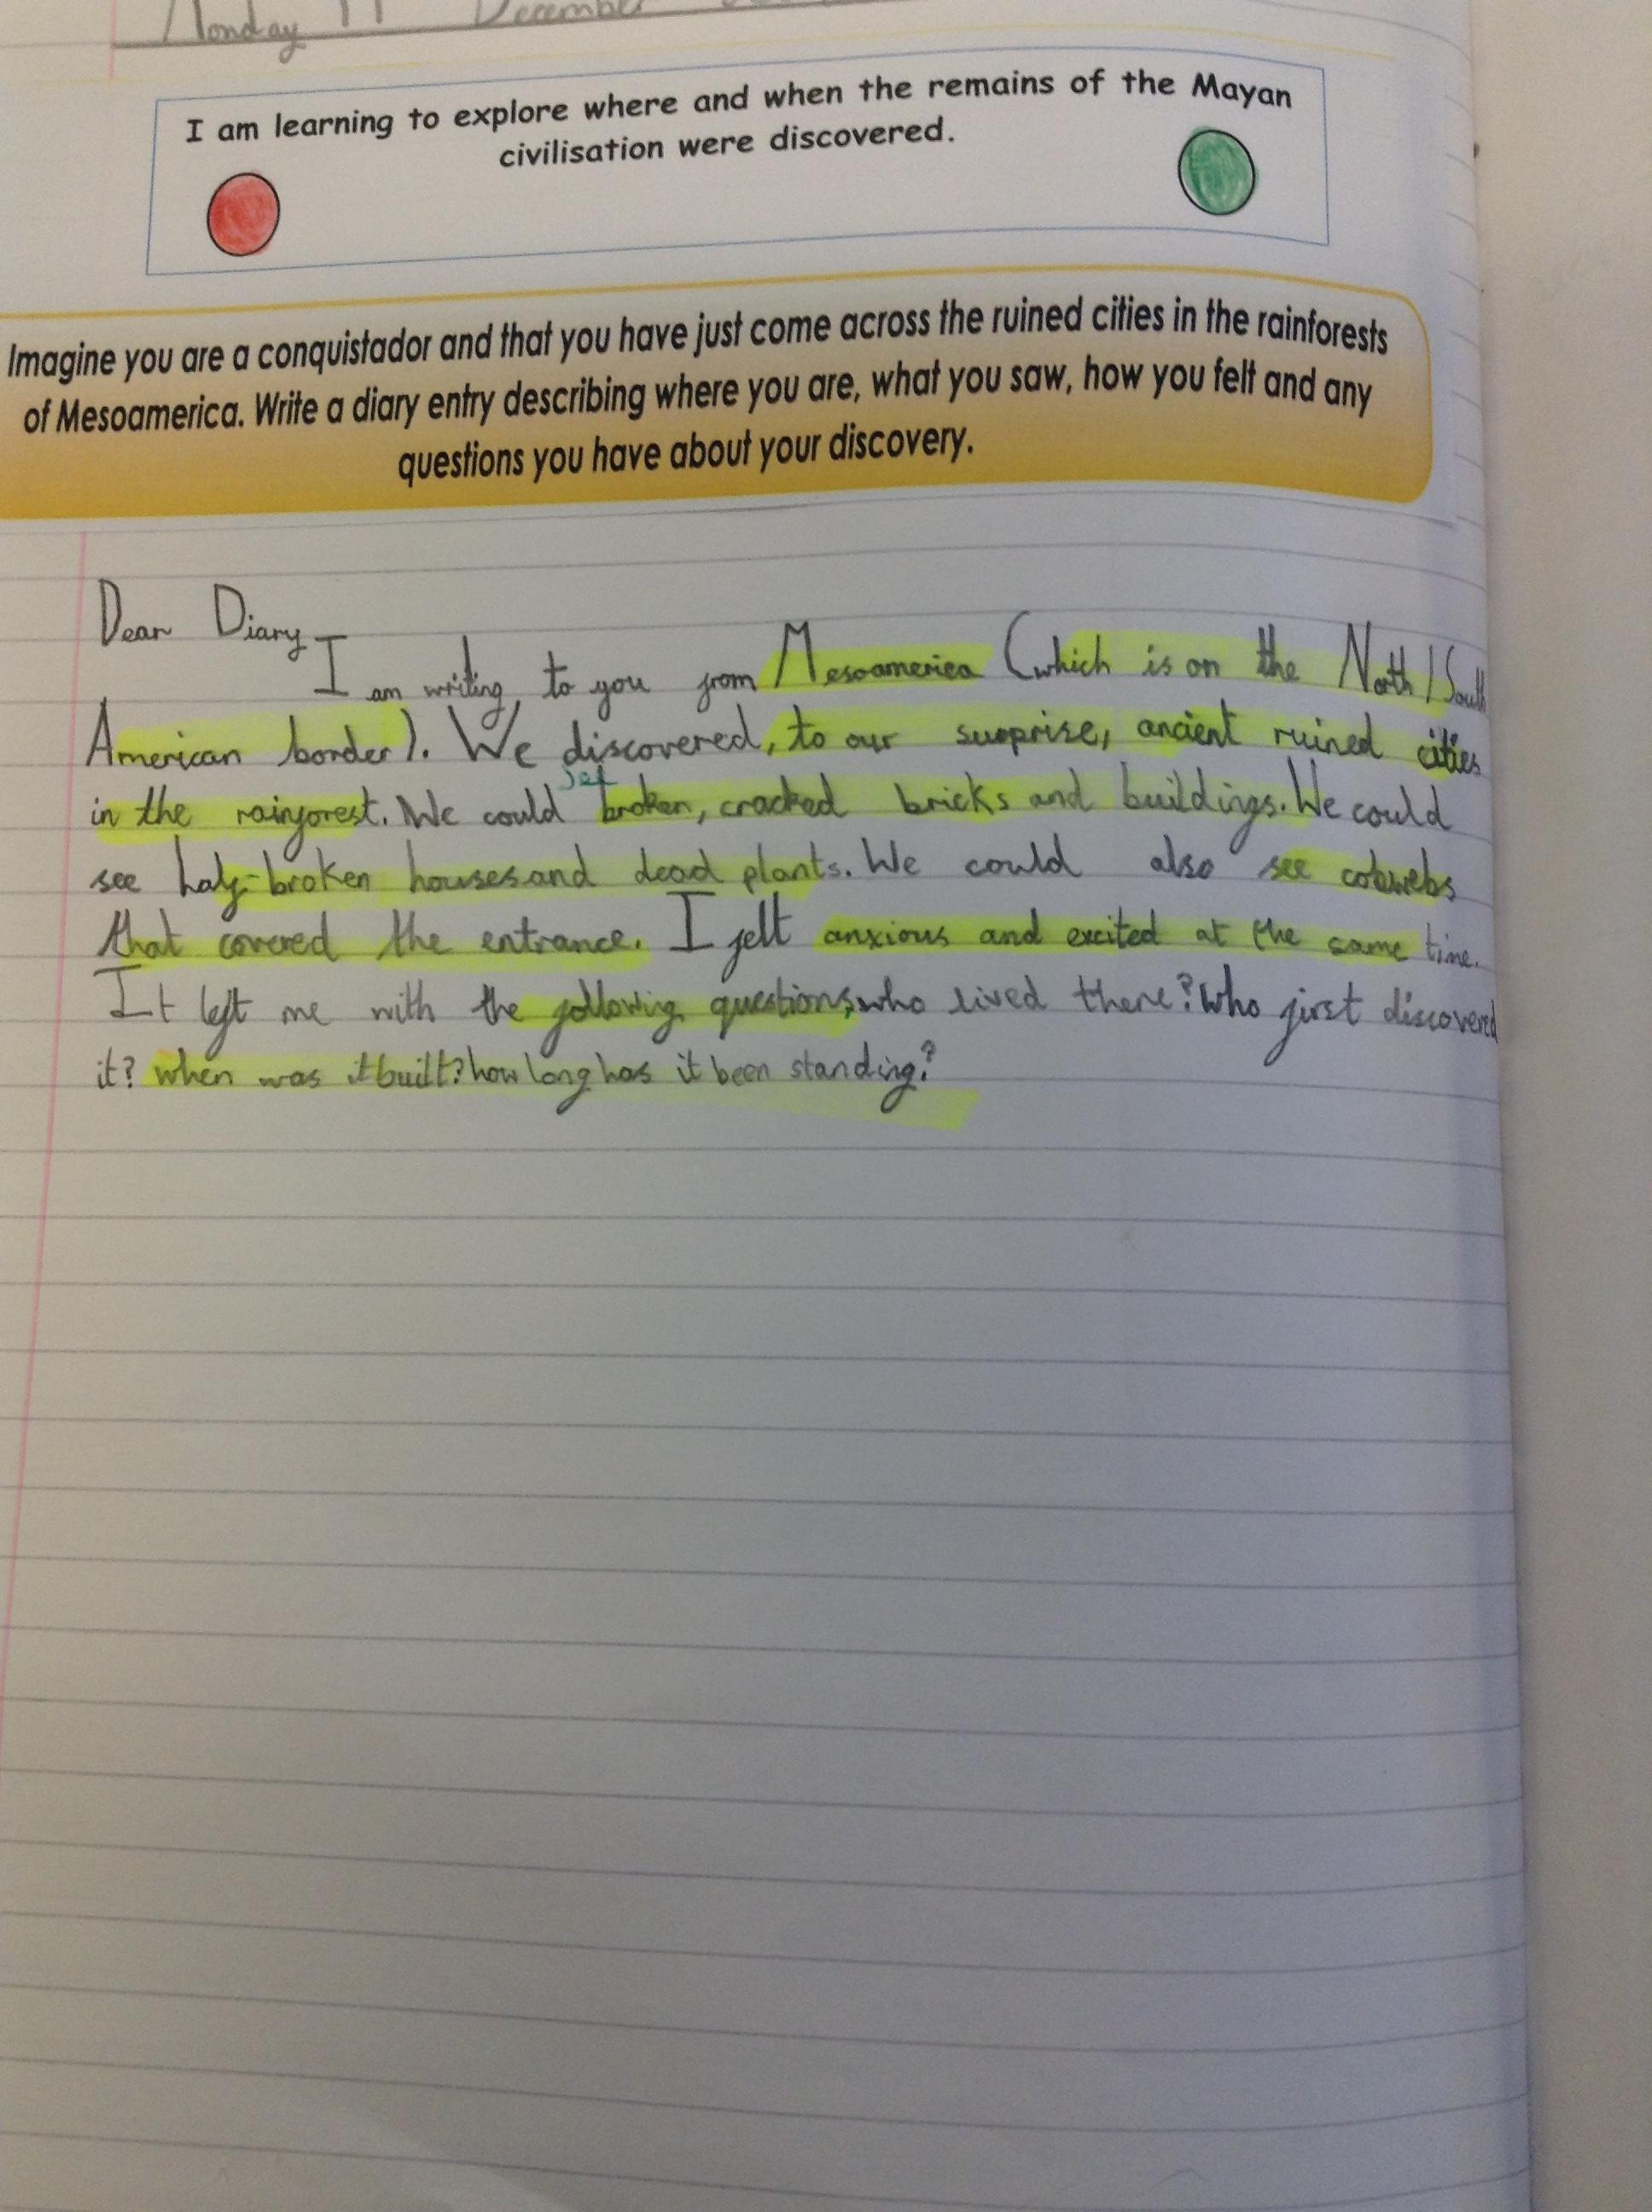 Monday 11 December
I am learning to explore where and when the remains of the Mayan
civilisation were discovered.
Imagine you are a conquistador and that you have just come across the ruined cities in the rainforests
of Mesoamerica. Write a diary entry describing where you are, what you saw, how you felt and any
questions you have about your discovery.
Dear Diary
I am writing to you from Mesoamerica (which is on the North/South
American border). We discovered, to our surprise, ancient ruined cities
see
in the rainforest. We could broken, cracked bricks and buildings. We could
see half-broken houses and dead plants. We could also see cobwebs
that covered the entrance. I felt anxious and excited at the same time.
It left me with the following questions, who lived there? Who first discovered
it? when was it built? how long has it been standing?